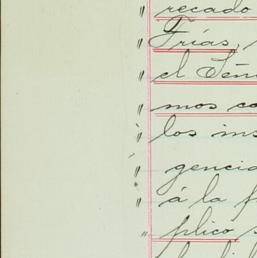 " recado
" Frías,
" el Seño
" mos co
" los ins
" gencia
" á la f
" plico s